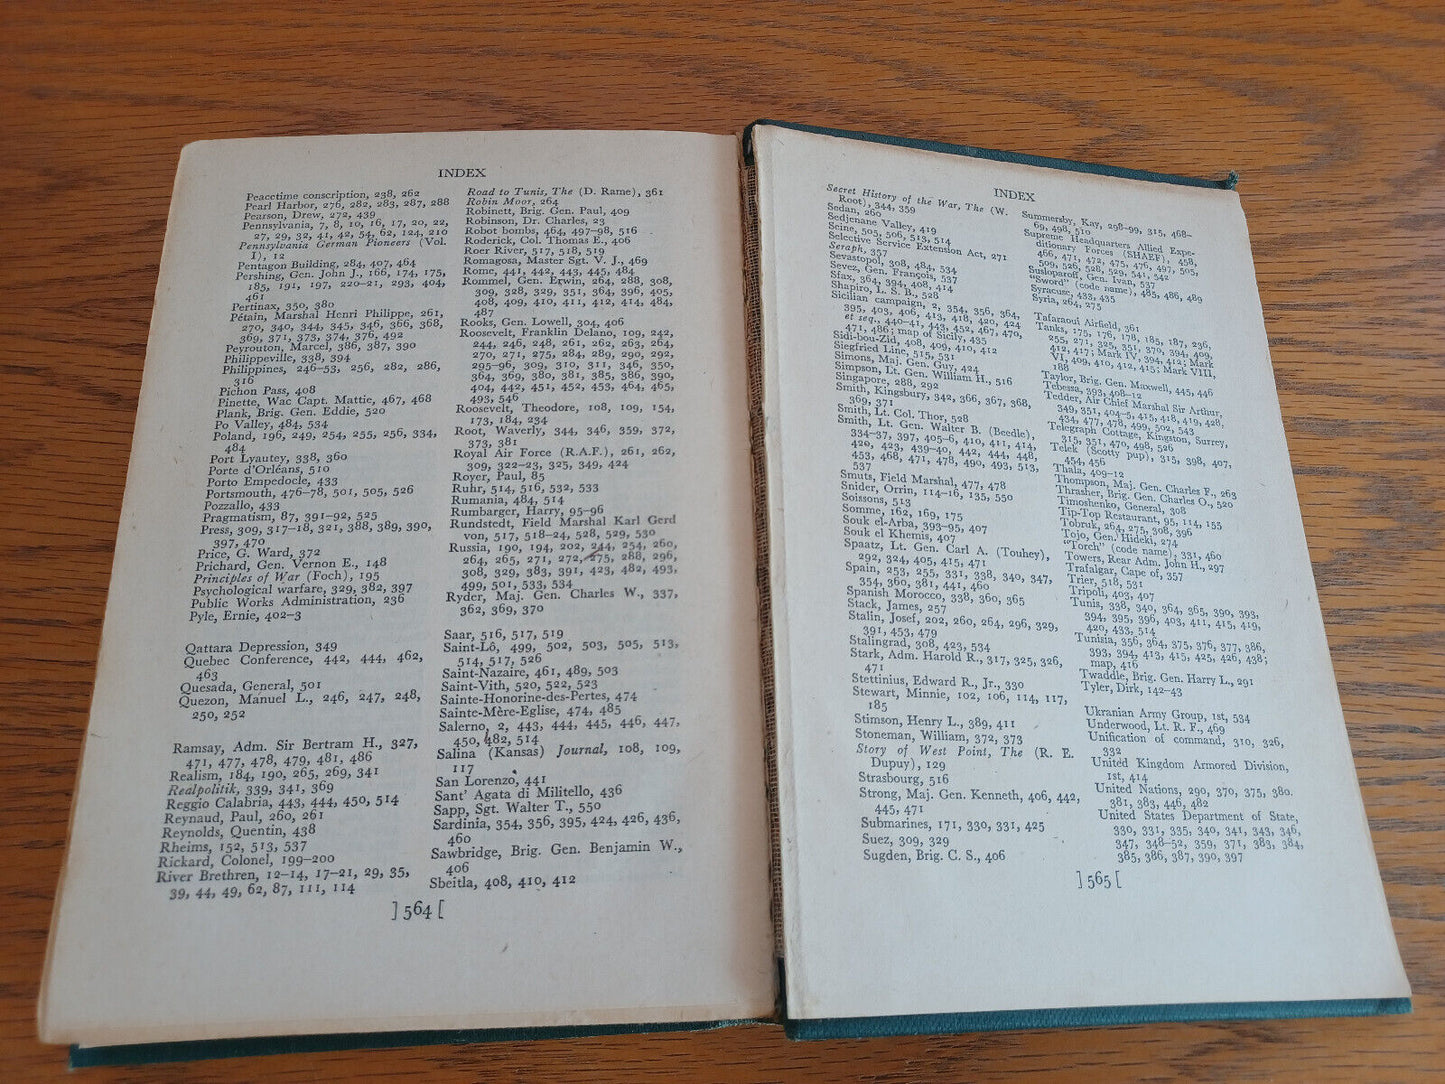 INDEX
Peacetime conscription, 238, 262
Pearl Harbor, 276, 282, 283, 287, 288
Pearson, Drew, 272, 439
Pennsylvania, 7, 8, 10, 16, 17, 20, 22,
27, 29, 32, 41, 42, 54, 62, 124, 210
Pennsylvania German Pioneers (Vol.
I), 12
Pentagon Building, 284, 407, 464
Pershing, Gen. John J., 166, 174, 175,
185, 191, 197, 220–21, 293, 404,
461
Pertinax, 350, 380
Pétain, Marshal Henri Philippe, 261,
270, 340, 344, 345, 346, 366, 368,
369, 371, 373, 374, 376, 492
Peyrouton, Marcel, 386, 387, 390
Philippeville, 338, 394
Philippines, 246–53, 256, 282, 286,
316
Pichon Pass, 408
Pinette, Wac Capt. Mattie, 467, 468
Plank, Brig. Gen. Eddie, 520
Po Valley, 484, 534
Poland, 196, 249, 254, 255, 256, 334,
484
Port Lyautey, 338, 360
Porte d'Orléans, 510
Porto Empedocle, 433
Portsmouth, 476–78, 501, 505, 526
Pozzallo, 433
Pragmatism, 87, 391–92, 525
Press, 309, 317–18, 321, 388, 389, 390,
397, 470
Price, G. Ward, 372
Prichard, Gen. Vernon E., 148
Principles of War (Foch), 195
Psychological warfare, 329, 382, 397
Public Works Administration, 236
Pyle, Ernie, 402–3
Qattara Depression, 349
Quebec Conference, 442, 444, 462,
463
Quesada, General, 501
Quezon, Manuel L., 246, 247, 248,
250, 252
Ramsay, Adm. Sir Bertram H., 327,
471, 477, 478, 479, 481, 486
Realism, 184, 190, 265, 269, 341
Realpolitik, 339, 341, 369
Reggio Calabria, 443, 444, 450, 514
Reynaud, Paul, 260, 261
Reynolds, Quentin, 438
Rheims, 152, 513, 537
Rickard, Colonel, 199–200
River Brethren, 12–14, 17–21, 29, 35,
39, 44, 49, 62, 87, 111, 114
Road to Tunis, The (D. Rame), 361
Robin Moor, 264
Robinett, Brig. Gen. Paul, 409
Robinson, Dr. Charles, 23
Robot bombs, 464, 497–98, 516
Roderick, Col. Thomas E., 406
Roer River, 517, 518, 519
Romagosa, Master Sgt. V. J., 469
Rome, 441, 442, 443, 445, 484
Rommel, Gen. Erwin, 264, 288, 308,
309, 328, 329, 351, 364, 396, 405,
408, 409, 410, 411, 412, 414, 484,
487
Rooks, Gen. Lowell, 304, 406
Roosevelt, Franklin Delano, 109, 242,
244, 246, 248, 261, 262, 263, 264,
270, 271, 275, 284, 289, 290, 292,
295–96, 309, 310, 311, 346, 350,
364, 369, 380, 381, 385, 386, 390,
404, 442, 451, 452, 453, 464, 465,
493, 546
Roosevelt, Theodore, 108, 109, 154,
173, 184, 234
Root, Waverly, 344, 346, 359, 372,
373, 381
Royal Air Force (R.A.F.), 261, 262,
309, 322–23, 325, 349, 424
Royer, Paul, 85
Ruhr, 514, 516, 532, 533
Rumania, 484, 514
Rumbarger, Harry, 95–96
Rundstedt, Field Marshal Karl Gerd
von, 517, 518–24, 528, 529, 530
Russia, 190, 194, 202, 244, 254, 260,
264, 265, 271, 272, 275, 288, 296,
308, 329, 383, 391, 423, 482, 493,
499, 501, 533, 534
Ryder, Maj. Gen. Charles W., 337,
362, 369, 370
Saar, 516, 517, 519
Saint-Lô, 499, 502, 503, 505, 513,
514, 517, 526
Saint-Nazaire, 461, 489, 503
Saint-Vith, 520, 522, 523
Sainte-Honorine-des-Pertes, 474
Sainte-Mère-Eglise, 474, 485
Salerno, 2, 443, 444, 445, 446, 447,
450, 482, 514
Salina (Kansas) Journal, 108, 109,
117
San Lorenzo, 441
Sant' Agata di Militello, 436
Sapp, Sgt. Walter T., 550
Sardinia, 354, 356, 395, 424, 426, 436,
460
Sawbridge, Brig. Gen. Benjamin W.,
406
Sbeitla, 408, 410, 412
] 564 [
INDEX
Secret History of the War, The (W.
Root), 344, 359
Sedan, 260
Sedjenane Valley, 419
Seine, 505, 506, 513, 514
Selective Service Extension Act, 271
Seraph, 357
Sevastopol, 308, 484, 534
Sevez, Gen. François, 537
Sfax, 364, 394, 408, 414
Shapiro, L. S. B., 528
Sicilian campaign, 2, 354, 356, 364,
395, 403, 406, 413, 418, 420, 424
et seq., 440–41, 443, 452, 467, 470,
471, 486; map of Sicily, 435
Sidi-bou-Zid, 408, 409, 410, 412
Siegfried Line, 515, 531
Simons, Maj. Gen. Guy, 424
Simpson, Lt. Gen. William H., 516
Singapore, 288, 292
Smith, Kingsbury, 342, 366, 367, 368,
369, 371
Smith, Lt. Col. Thor, 528
Smith, Lt. Gen. Walter B. (Beedle),
334–37, 397, 405–6, 410, 411, 414,
420, 423, 439–40, 442, 444, 448,
453, 468, 471, 478, 490, 493, 513,
537
Smuts, Field Marshal, 477, 478
Snider, Orrin, 114–16, 135, 550
Soissons, 513
Somme, 162, 169, 175
Souk el-Arba, 393–95, 407
Souk el Khemis, 407
Spaatz, Lt. Gen. Carl A. (Touhey),
292, 324, 405, 415, 471
Spain, 253, 255, 331, 338, 340, 347,
354, 360, 381, 441, 460
Spanish Morocco, 338, 360, 365
Stack, James, 257
Stalin, Josef, 202, 260, 264, 296, 329,
391, 453, 479
Stalingrad, 308, 423, 534
Stark, Adm. Harold R., 317, 325, 326,
471
Stettinius, Edward R., Jr., 330
Stewart, Minnie, 102, 106, 114, 117,
185
Stimson, Henry L., 389, 411
Stoneman, William, 372, 373
Story of West Point, The (R. E.
Dupuy), 129
Strasbourg, 516
Strong, Maj. Gen. Kenneth, 406, 442,
445, 471
Submarines, 171, 330, 331, 425
Suez, 309, 329
Sugden, Brig. C. S., 406
Summersby, Kay, 298–99, 315, 468–
69, 498, 510
Supreme Headquarters Allied Expe-
ditionary Forces (SHAEF), 458,
466, 471, 472, 475, 476, 497, 505,
509, 526, 528, 529, 541, 542
Susloparoff, Gen. Ivan, 537
"Sword" (code name), 485, 486, 489
Syracuse, 433, 435
Syria, 264, 275
Tafaraoui Airfield, 361
Tanks, 175, 176, 178, 185, 187, 236,
255, 271, 325, 351, 370, 394, 409,
412, 417; Mark IV, 394, 412; Mark
VI, 409, 410, 412, 415; Mark VIII,
188
Taylor, Brig. Gen. Maxwell, 445, 446
Tebessa, 393, 408–12
Tedder, Air Chief Marshal Sir Arthur,
349, 351, 404–5, 415, 418, 419, 428,
434, 477, 478, 499, 502, 543
Telegraph Cottage, Kingston, Surrey,
315, 351, 470, 498, 526
Telek (Scotty pup), 315, 398, 407,
454, 456
Thala, 409–12
Thompson, Maj. Gen. Charles F., 263
Thrasher, Brig. Gen. Charles O., 520
Timoshenko, General, 308
Tip-Top Restaurant, 95, 114, 155
Tobruk, 264, 275, 308, 396
Tojo, Gen. Hideki, 274
"Torch" (code name), 331, 460
Towers, Rear Adm. John H., 297
Trafalgar, Cape of, 357
Trier, 518, 531
Tripoli, 403, 407
Tunis, 338, 340, 364, 365, 390, 393,
394, 395, 396, 403, 411, 415, 419,
420, 433, 514
Tunisia, 356, 364, 375, 376, 377, 386,
393, 394, 413, 415, 425, 426, 438;
map, 416
Twaddle, Brig. Gen. Harry L., 291
Tyler, Dirk, 142–43
Ukranian Army Group, 1st, 534
Underwood, Lt. R. F., 469
Unification of command, 310, 326,
332
United Kingdom Armored Division,
1st, 414
United Nations, 290, 370, 375, 380.
381, 383, 446, 482
United States Department of State,
330, 331, 335, 340, 341, 343, 346,
347, 348–52, 359, 371, 383, 384,
385, 386, 387, 390, 397
] 565 [